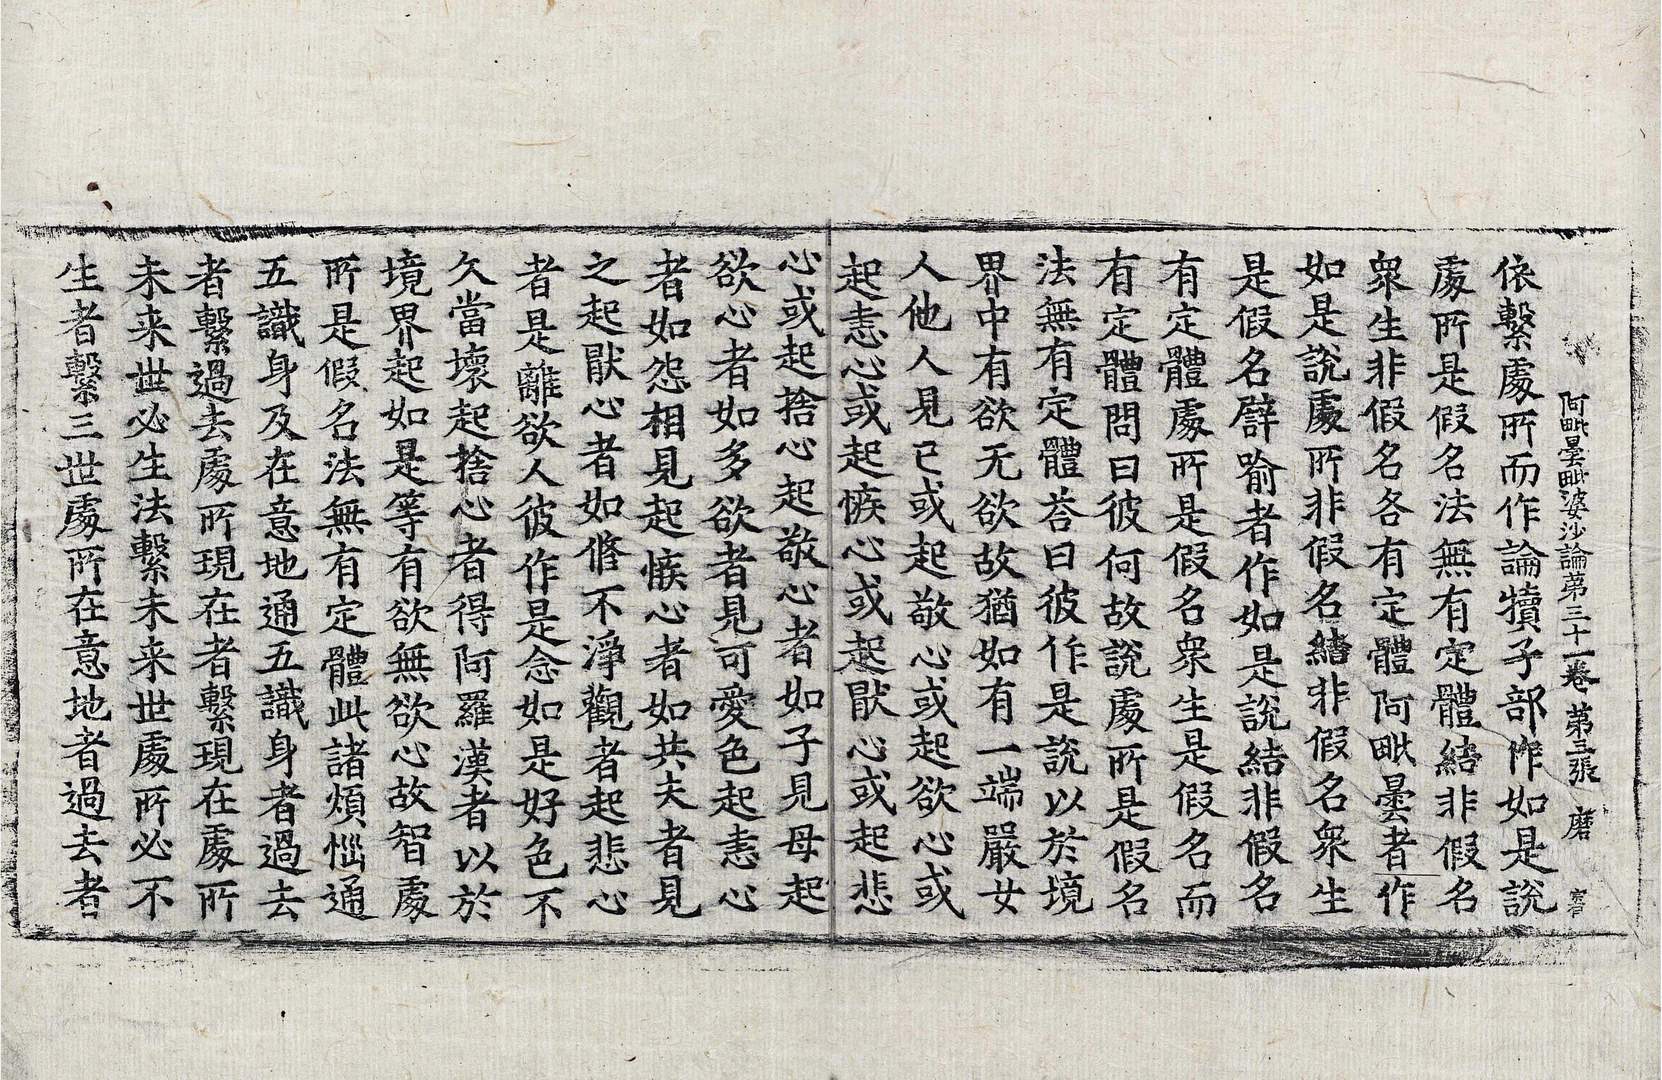 阿毗曇毗婆沙論第三十一卷 第三張 磨
依繫處所而作論犢子部作如是說
處所是假名法無有定體結非假名
衆生非假名各有定體阿毗曇者作
如是說處所非假名結非假名衆生
是假名譬喻者作如是說結非假名
有定體處所是假名衆生是假名而
有定體問曰彼何故說處所是假名
法無有定體荅曰彼作是說以於境
界中有欲无欲故猶如有一端嚴女
人他人見已或起敬心或起欲心或
起恚心或起嫉心或起猒心或起悲
心或起捨心起敬心者如子見母起
欲心者如多欲者見可愛色起恚心
者如怨相見起嫉心者如共夫者見
之起猒心者如脩不淨觀者起悲心
者是離欲人彼作是念如是好色不
久當壞起捨心者得阿羅漢者以於
境界起如是等有欲無欲心故智處
所是假名法無有定體此諸煩惱通
五識身及在意地通五識身者過去
者繫過去處所現在者繫現在處所
未来世必生法繫未来世處所必不
生者繫三世處所在意地者過去者